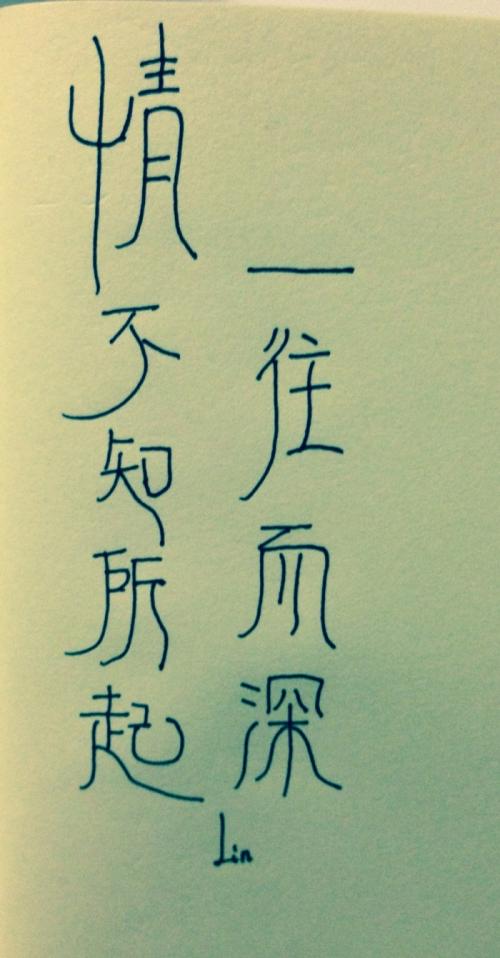 情不知所起
一往而深
Lin